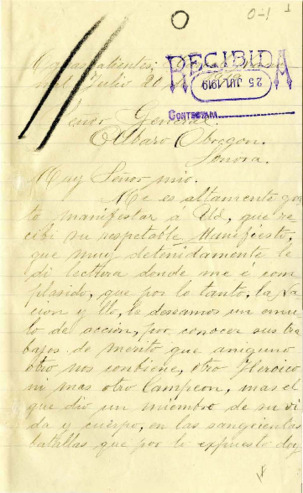 0-1 1
Aguascalientes,
Julio 20
RECIBIDA
25 JUL 1919
CONTESTADA
Señor General.
Alvaro Obregon.
Sonora.
Muy Señor mio.
Me es altamente gra
to manifestar a Ud, que re
cibi su respetable Manifiesto,
que muy detenidamente le
di lectura donde me e com
plasido, que por lo tanto, la Na
cion y Yo, le deseamos un
lo de acción, por conocer sus tra
bajos de merito que ninguno
otro nos conbiene, otro Heroico,
ni mas otro Campeon, mas el
que dio un miembro de su vi
da y cuerpo, en las sangrientas
batallas que por lo expuesto